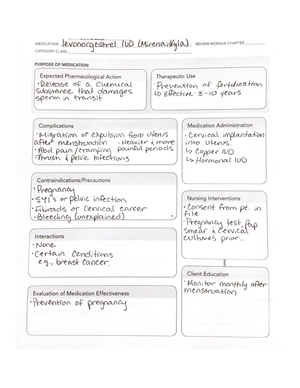 MEDICATION levonorgestrel IUD (Mirena, Kyla) REVIEW MODULE CHAPTER
CATEGORY CLASS
PURPOSE OF MEDICATION
Expected Pharmacological Action
• Release of a chemical
substance that damages
sperm in transit
Therapeutic Use
Prevention of fertilization
↳ Effective 3-10 years
Complications
• Migration or Expulsion from uterus
after menstruation • Heavier & more
• Abd pain/cramping painful periods
• Thrush & pelvic infections
Medication Administration
• Cervical implantation
into uterus
↳ Copper IUD
↳ Hormonal IUD
Contraindications/Precautions
• Pregnancy
• STI's or pelvic infection
• Fibroids or Cervical cancer
• Bleeding (unexplained)
Nursing Interventions
• Consent from pt. in
file
• Pregnancy test, Pap
smear & cervical
cultures prior...
Interactions
• None
• Certain conditions
e.g., breast cancer.
Client Education
• Monitor monthly after
menstruation
Evaluation of Medication Effectiveness
• Prevention of pregnancy